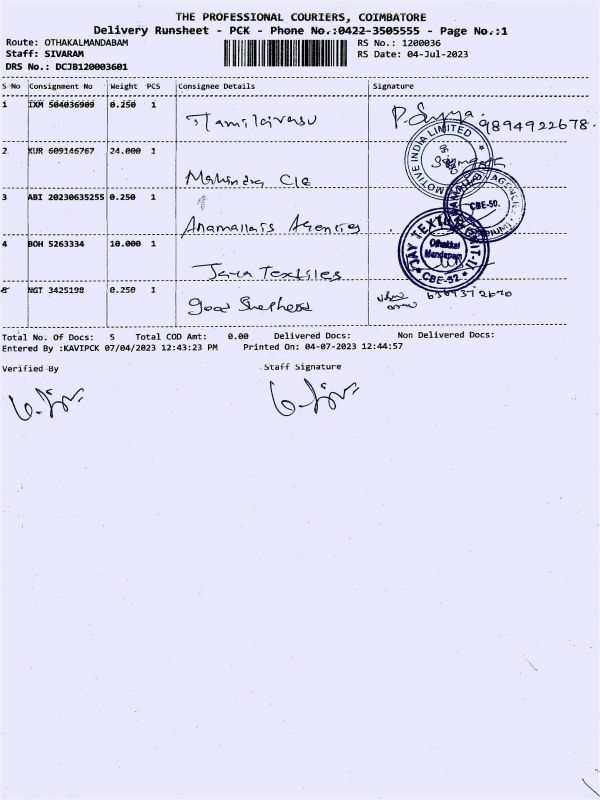 THE PROFESSIONAL COURIERS, COIMBATORE
Delivery Runsheet - PCK - Phone No.:0422-3505555 - Page No.:1
Route: OTHAKALMANDABAM RS No.: 1200036
Staff: SIVARAM RS Date: 04-Jul-2023
DRS No.: DCJB120003601
S No Consignment No Weight PCS Consignee Details Signature
1 IXM 504036909 0.250 1 Tamilarasu 9894922678.
2 KUR 609146767 24.000 1 Mahindra CIE
MOTIVE INDIA LIMITED
3 ABI 20230635255 0.250 1 Anamallais Agencies
CBE-50.
4 BOH 5263334 10.000 1 Jaya Textiles
JAY TEXT UNIT-II
Othakkal
Mandapam
CBE-32
5 NGT 3425198 0.250 1 good Shepherd
Total No. Of Docs: 5 Total COD Amt: 0.00 Delivered Docs: Non Delivered Docs:
Entered By :KAVIPCK 07/04/2023 12:43:23 PM Printed On: 04-07-2023 12:44:57
Verified By Staff Signature